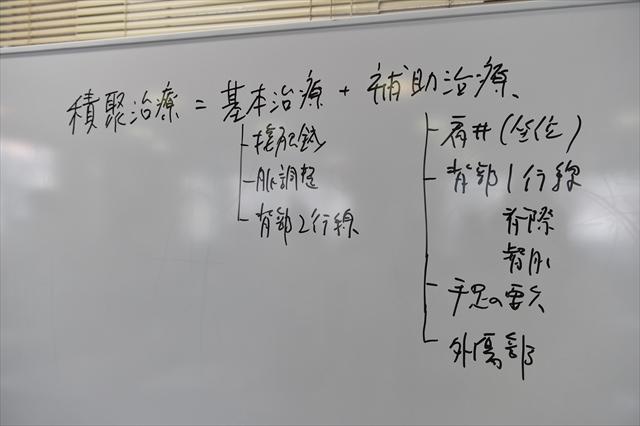 積聚治療 = 基本治療 + 補助治療
接触鍼
脈調整
背部2行線
肩井(坐位)
背部1行線
脊際
臀部
手足の要穴
外傷部